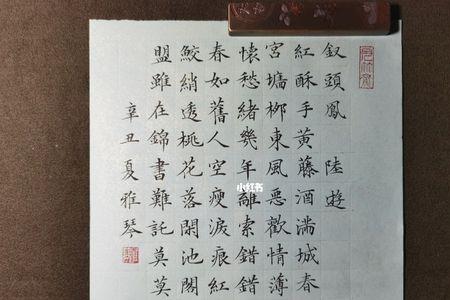 釵頭鳳 陸遊
紅酥手黃藤酒滿城春
宮墻栁東風惡歡情薄
懷愁緒幾年離索錯錯
春如舊人空瘦淚痕紅
鮫綃透桃花落閑池閣
盟雖在錦書難託莫莫
辛丑夏雅琴
小红书